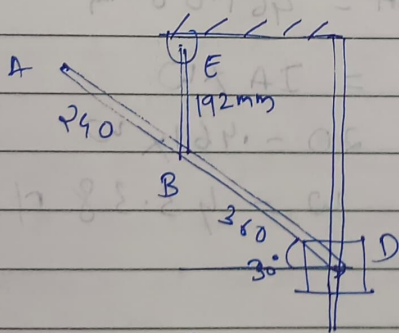 A
E
192mm
240
B
360
30°
D